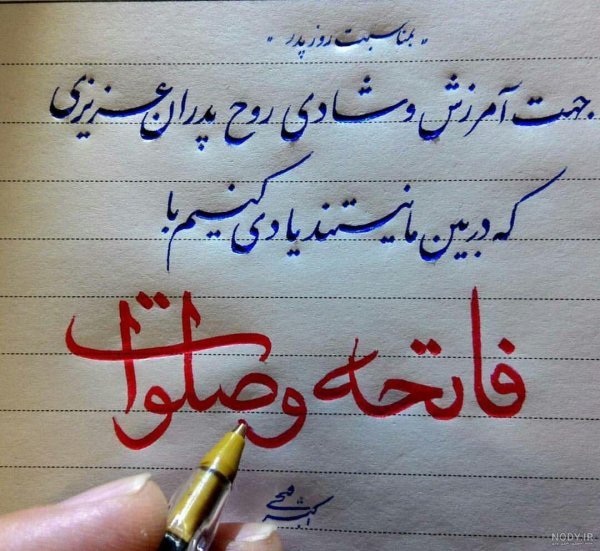 "بمناسبت روز پدر"
جهت آمرزش و شادی روح پدران عزیزی
که در بین ما نیستند یادی کنیم با
فاتحه و صلوات
NODY.IR